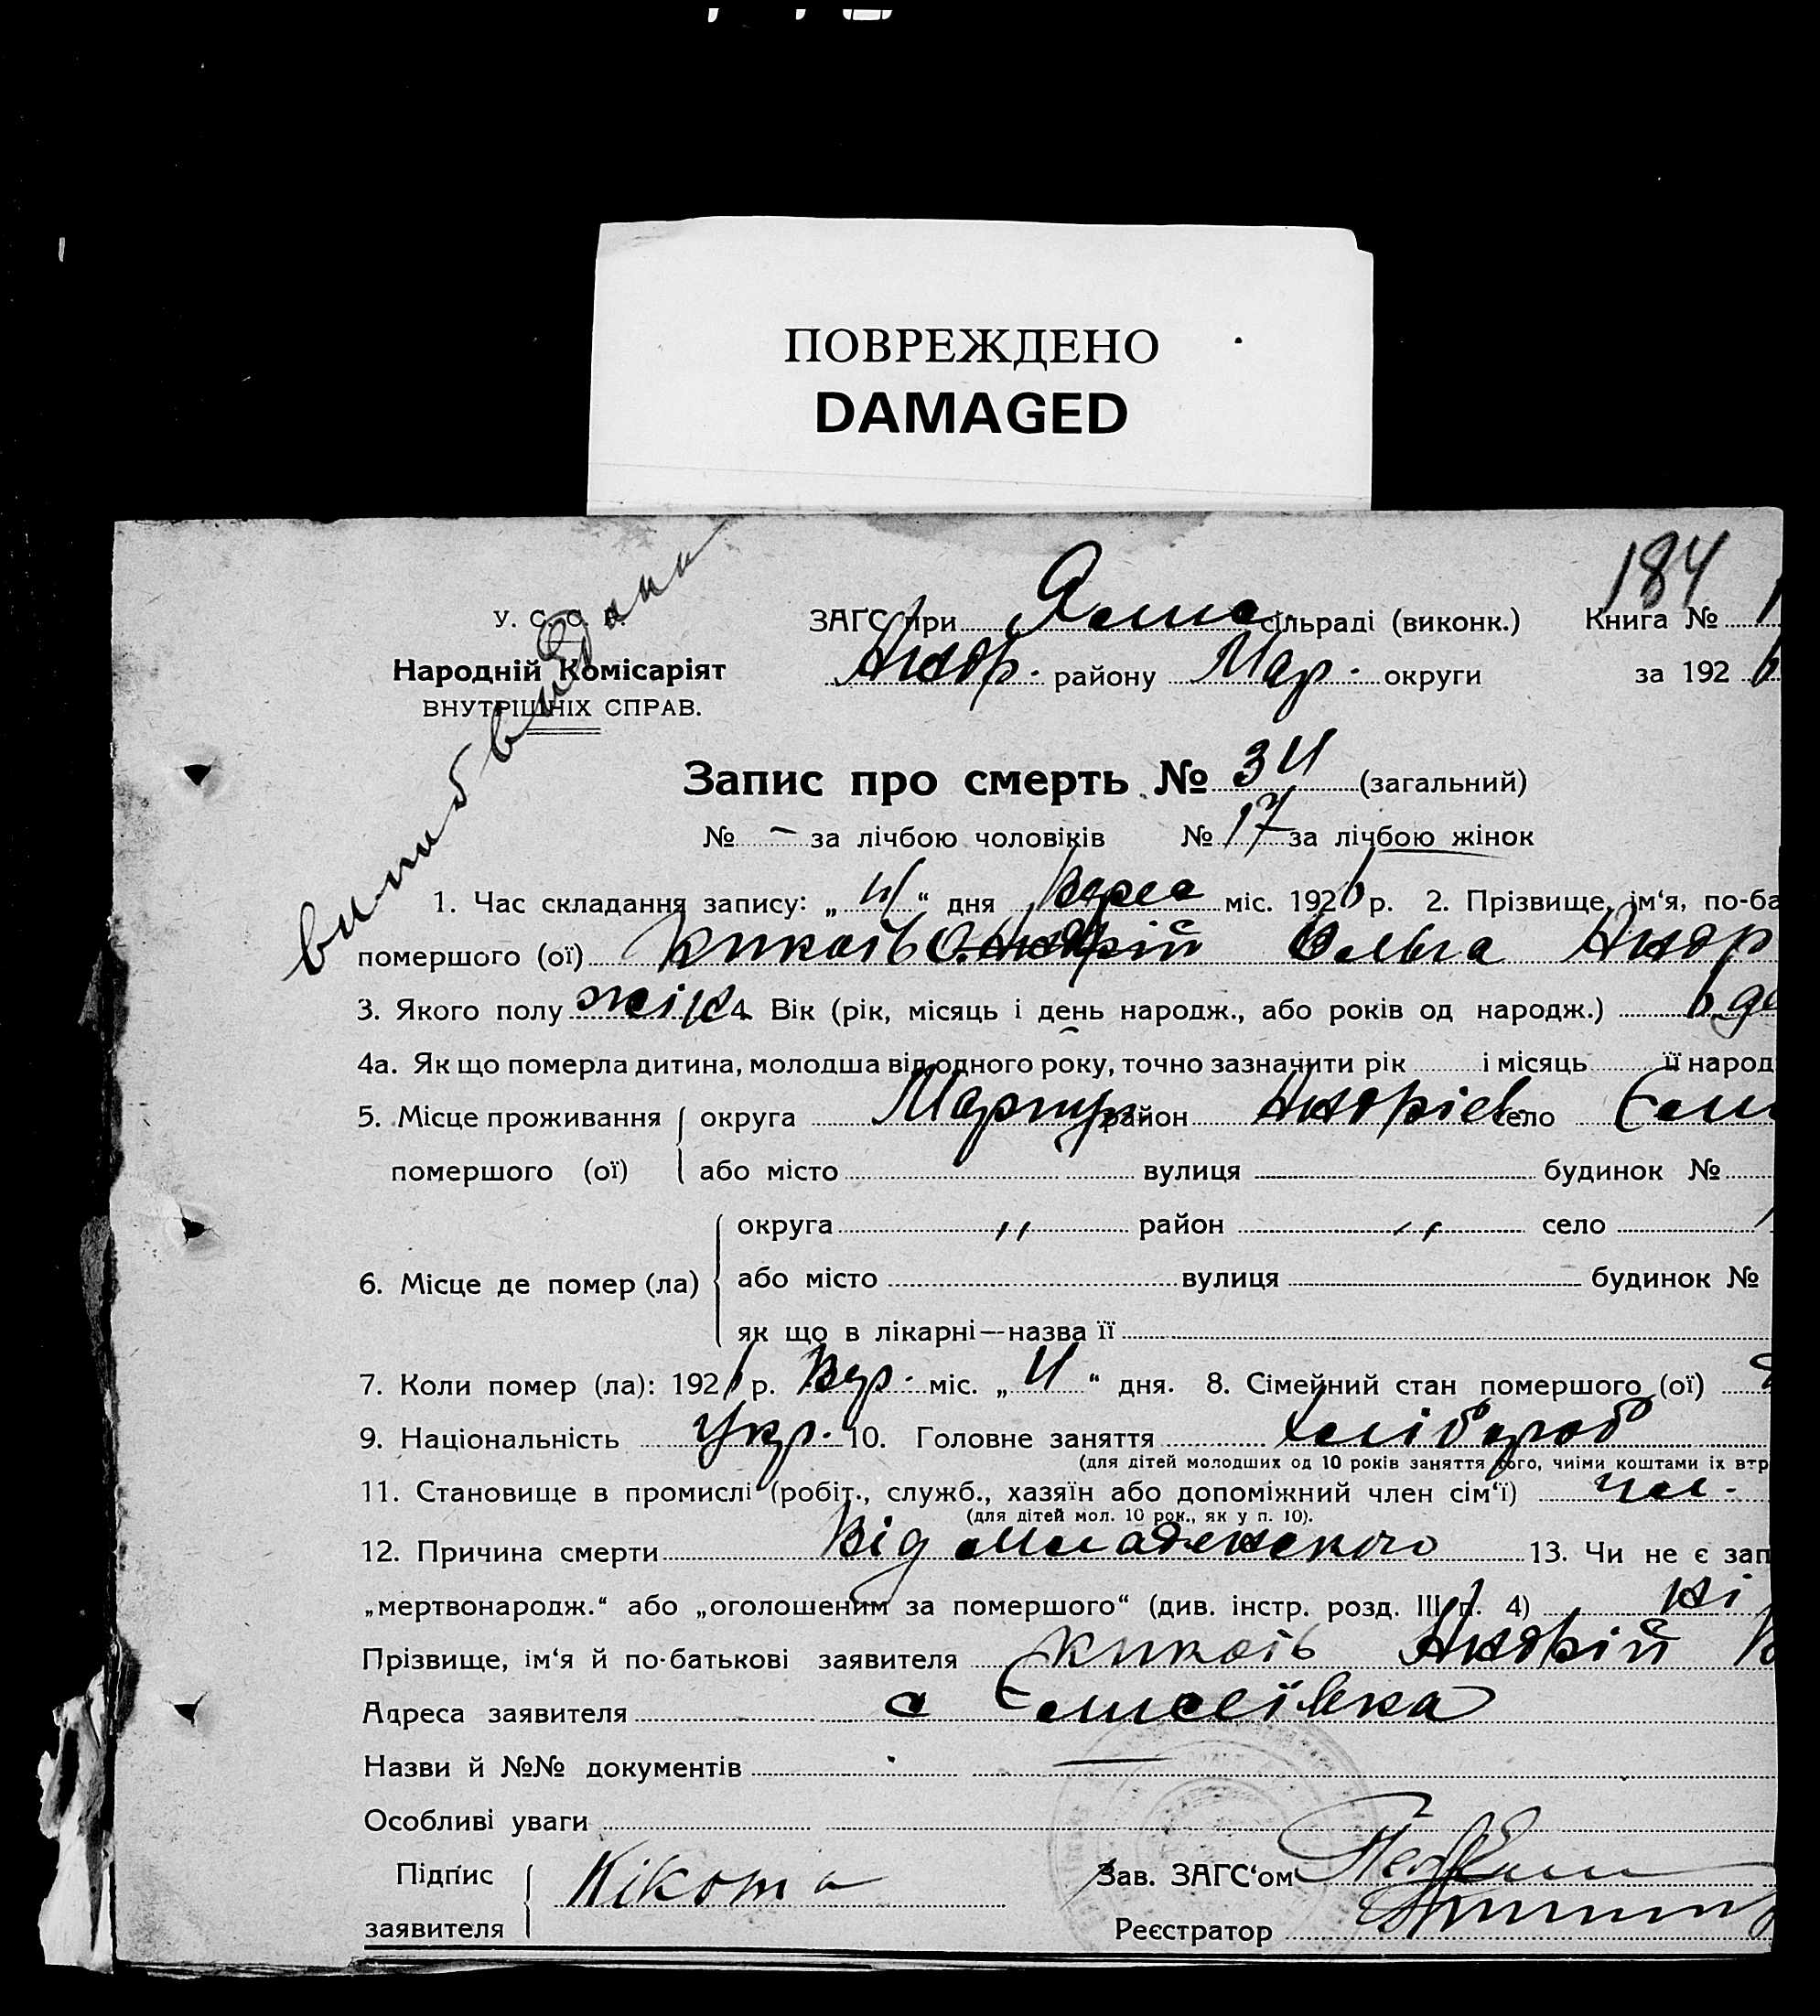 ПОВРЕЖДЕНО
DAMAGED
184
У. С. С. Р. ЗАГС при сільраді (виконк.) Книга №
Народній Комісаріят Андр. району Мар. округи за 192 6
ВНУТРІШНІХ СПРАВ.
Запис про смерть № 34 (загальний)
№ – за лічбою чоловіків № 17 за лічбою жінок
випис видани
1. Час складання запису: „ “ дня Верес міс. 1926 р. 2. Прізвище, ім‘я, по-ба
помершого (ої) Андрій Ольга Андр
3. Якого полу жін 4. Вік (рік, місяць і день народж., або років од народж.) 6
4а. Як що померла дитина, молодша від одного року, точно зазначити рік і місяць її народ
5. Місце проживання округа Маріуп район Андріев село
помершого (ої) або місто вулиця будинок №
округа " район " село
6. Місце де помер (ла) або місто вулиця будинок №
як що в лікарні—назва її
7. Коли помер (ла): 1926 р. Вер. міс. „ 4 “ дня. 8. Сімейний стан помершого (ої)
9. Національність Укр. 10. Головне заняття хлібороб
(для дітей молодших од 10 років заняття того, чиїми коштами їх втр
11. Становище в промислі (робіт., служб., хазяїн або допоміжний член сім‘ї) чл.
(для дітей мол. 10 рок., як у п. 10).
12. Причина смерти Від младенского 13. Чи не є зап
„мертвонародж.“ або „оголошеним за помершого“ (див. інстр. розд. III п. 4) ні
Прізвище, ім‘я й по-батькові заявителя Андрій
Адреса заявителя с Елисеївка
Назви й №№ документів —
Особливі уваги
Підпис Кікоть Зав. ЗАГС‘ом
заявителя Реєстратор